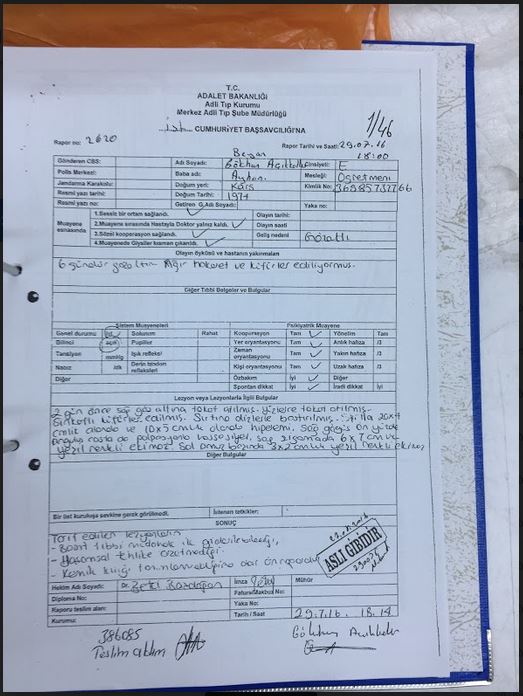 T.C.
ADALET BAKANLIĞI
Adli Tıp Kurumu
Merkez Adli Tıp Şube Müdürlüğü
İst. CUMHURİYET BAŞSAVCILIĞI'NA
1/46
Rapor no: 2620
Rapor Tarihi ve Saati: 29.07.16
18:00
Beyan
Gönderen CBS: Adı Soyadı: Gökhan Açıkkollu Cinsiyeti: E
Polis Merkezi: Baba adı: Ayhan Mesleği: Öğretmen
Jandarma Karakolu: Doğum yeri: Kars Kimlik No:
Resmi yazı tarihi: Doğum Tarihi: 1974
Resmi yazı no: Getiren G.Adı Soyadı: Yaka no:
Muayene esnasında
1.Sessiz bir ortam sağlandı. Olayın tarihi:
2.Muayene sırasında Hastayla Doktor yalnız kaldı. Olayın saati
3.Sözel kooperasyon sağlandı. Geliş nedeni Gözaltı
4.Muayenede Giysiler kısmen çıkarıldı.
Olayın öyküsü ve hastanın yakınmaları
6 gündür gözaltında. Ağır hakaret ve küfürler ediliyormuş.
Diğer Tıbbi Belgeler ve Bulgular
Sistem Muayeneleri Psikiyatrik Muayene
Genel durumu iyi Solunum Rahat Kooperasyon Tam Yönelim Tam
Bilinci açık Pupiller Yer oryantasyonu Tam Anlık hafıza /3
Tansiyon mmHg Işık refleksi Zaman oryantasyonu Tam Yakın hafıza /3
Nabız /dk Derin tendon refleksleri Kişi oryantasyonu Tam Uzak hafıza /3
Diğer Özbakım İyi Diğer
Spontan dikkat İyi İradi dikkat İyi
Lezyon veya Lezyonlarla İlgili Bulgular
2 gün önce sağ göz altına tokat atılmış. Yüzlere tokat atılmış.
küfürler edilmiş. Sırtına dizlerle bastırılmış. 20x4
cmlik alanda ve 10x5 cmlik alanda hiperemi. Sağ göğüs ön yüzde
costa da palpasyonla hassasiyet. Sağ 6x7 cm lik
yeşil renkli ekimoz. Sol omuz başında 3x2 cmlik yeşil renkli ekimoz
Diğer Bulgular
Bir üst kuruluşa sevkine gerek görülmedi. İstenen tetkikler:
SONUÇ
Tarif edilen lezyonların
- Basit tıbbi müdahale ile giderilebileceği,
- Yaşamsal tehlike arzetmediği
- Kemik kırığı tanımlanmadığına dair ön rapordur
ASLI GİBİDİR
Hekim Adı Soyadı: Dr. İmza Mühür
Diploma No: Fatura/Makbuz No:
Raporu teslim alan: Yaka No:
Kurumu: Tarih / Saat 29.7.16. 18.14
386085
Teslim aldım
Gökhan Açıkkollu